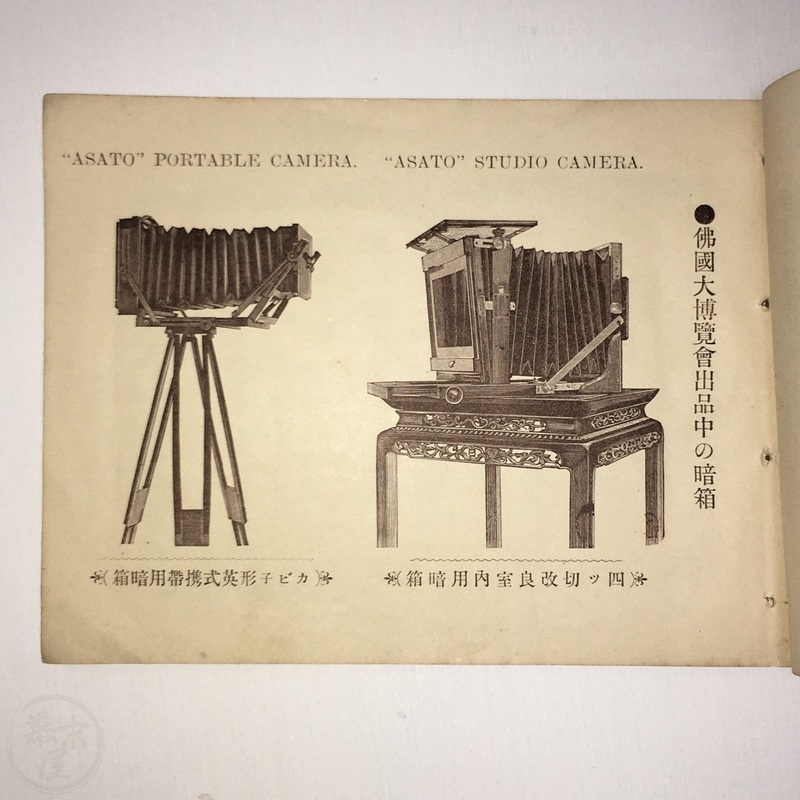 “ASATO” PORTABLE CAMERA. “ASATO” STUDIO CAMERA.
●佛國大博覽會出品中の暗箱
四ッ切改良室內用暗箱
カビ子形英式携帶用暗箱
幕末屋